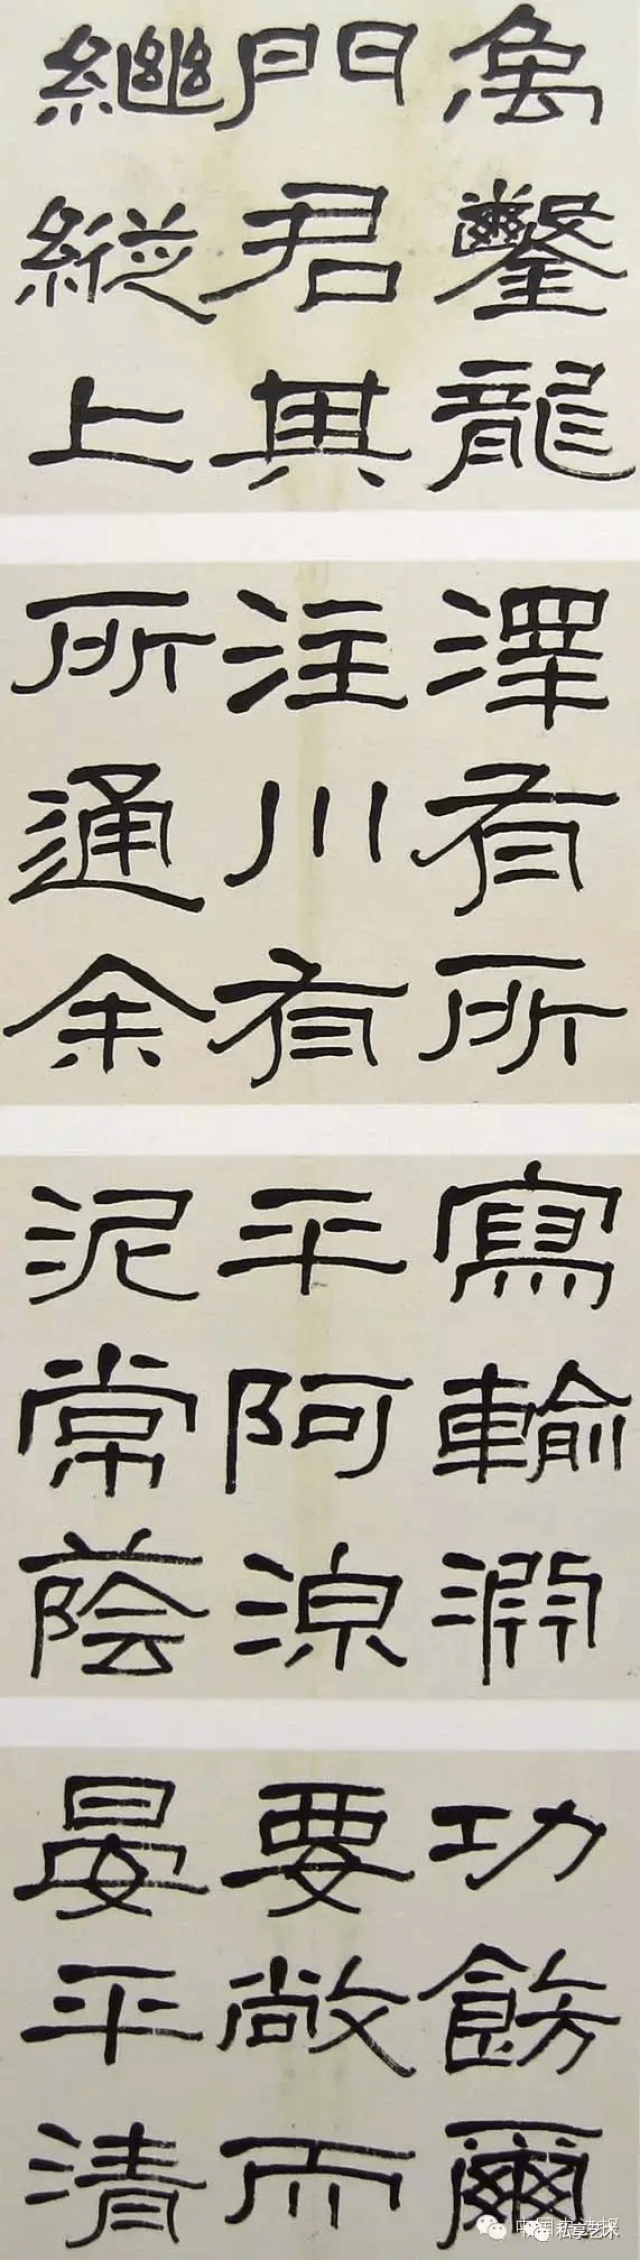 禹鑿龍
門君其
繼縱上
澤有所
注川有
所通余
寫輸淵
平阿湶
泥常蔭
功飭爾
要敞而
晏平清
私享艺术